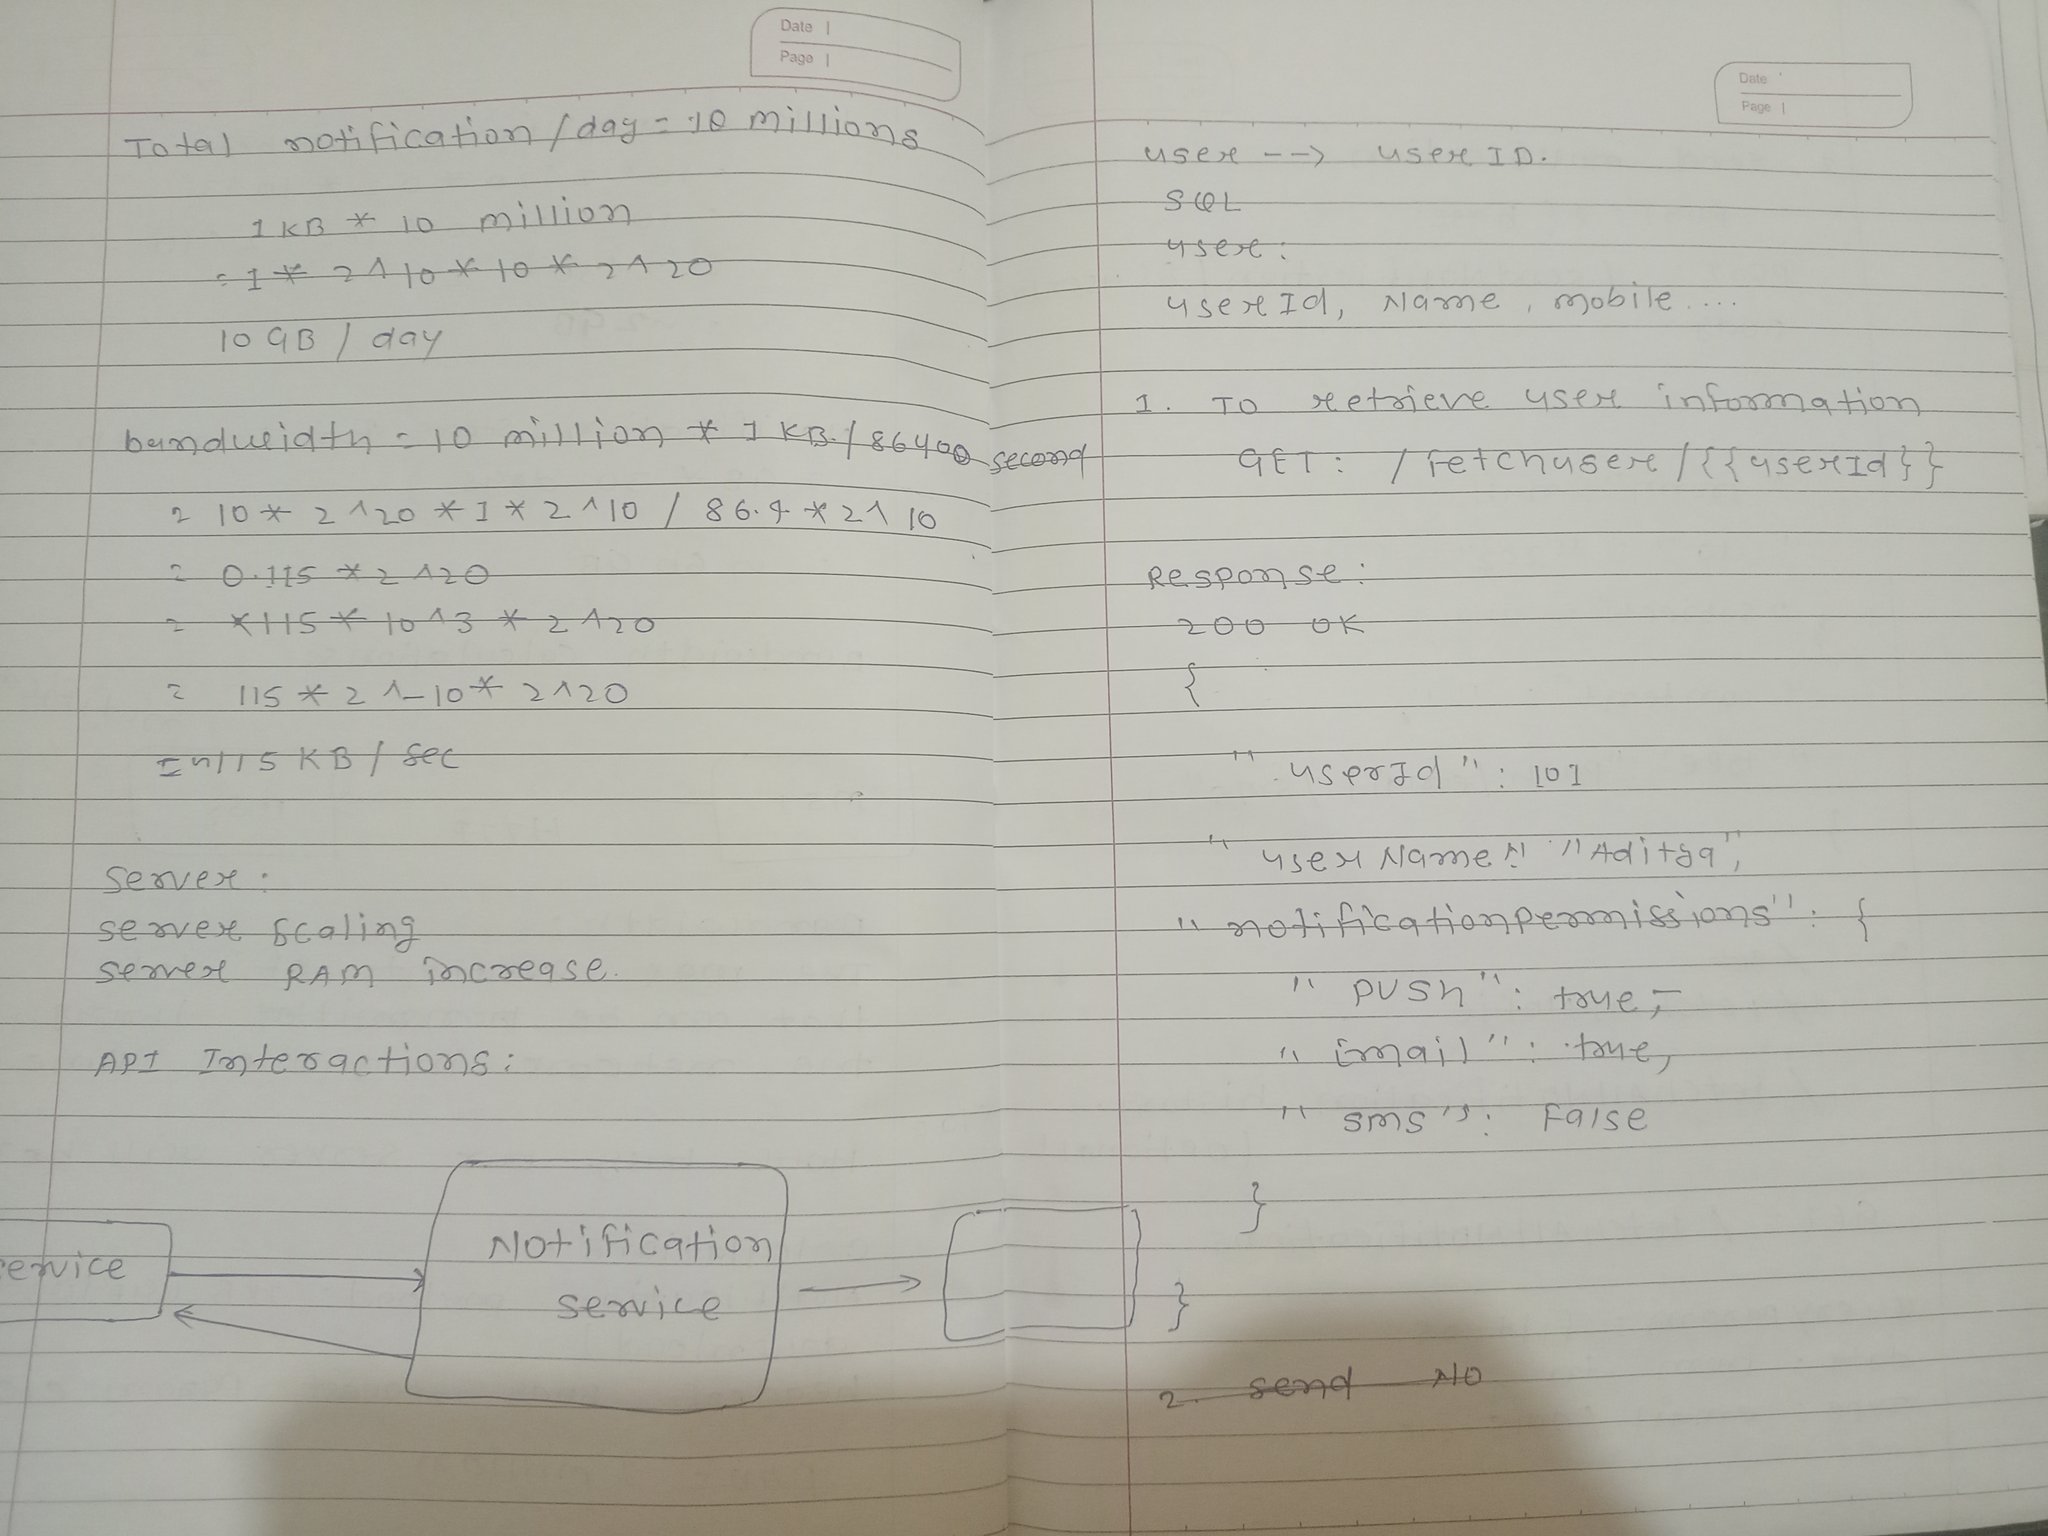 Date
Page
Total notification / day = 10 millions
1 KB * 10 million
= 1 * 2^10 * 10 * 2^20
10 GB / day
bandwidth = 10 million * 1 KB / 86400 second
= 10 * 2^20 * 1 * 2^10 / 86.4 * 2^10
= 0.115 * 2^20
= *115 * 10^3 * 2^20
= 115 * 2^-10 * 2^20
= 115 KB / sec
Server:
server scaling
server RAM increase.
API Interactions:
service
Notification
service
Date
Page
user --> user ID.
SQL
user:
userId, Name, mobile....
1. To retrieve user information
GET: /fetchuser/{{userId}}
Response:
200 OK
{
"userId": 101
"userName": "Aditya",
"notificationpermissions": {
"PUSH": true,
"Email": true,
"SMS": False
}
}
2. send NO